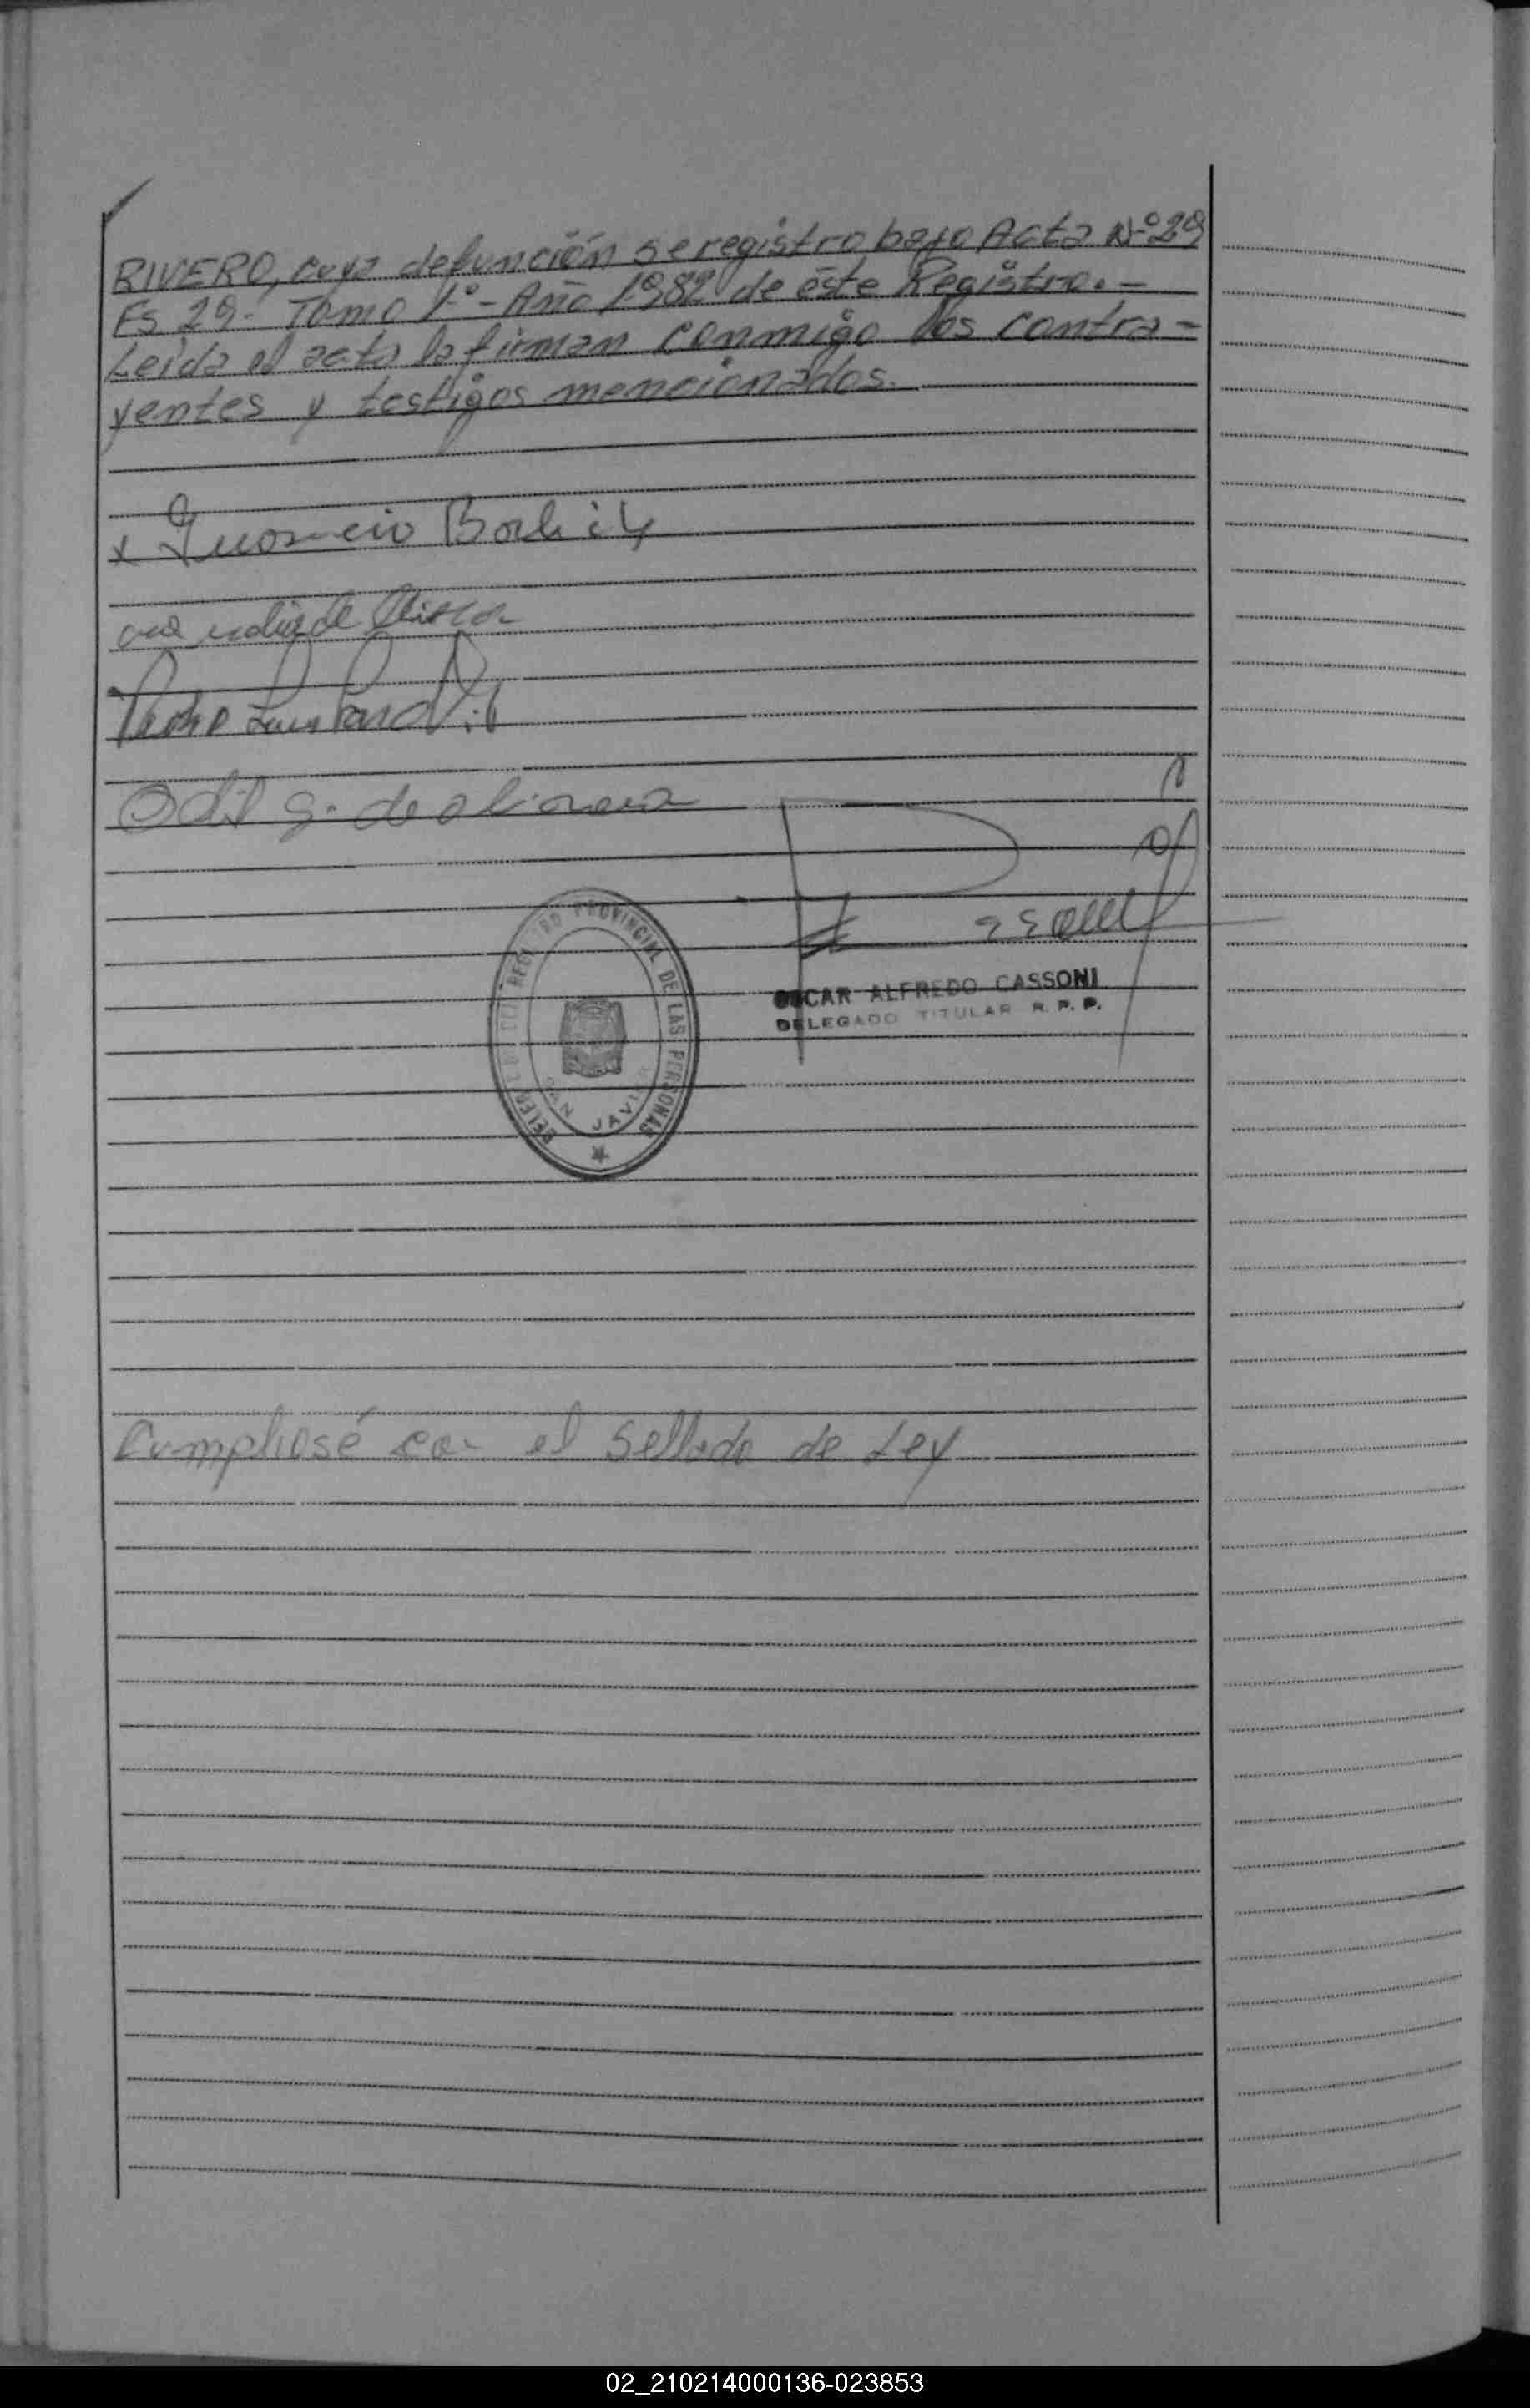 RIVERO, cuya defunción se registro bajo Acta Nº 29
Fs 29- Tomo 1º- Año 1982 de éste Registro.-
Leida el acta la firman conmigo los contra-
yentes y testigos mencionados.-
x
Odil G. de
DEL REGISTRO PROVINCIAL DE LAS PERSONAS
SAN JAVIER
OSCAR ALFREDO CASSONI
DELEGADO TITULAR R. P. P.
Cumpliosé con el Sellado de Ley
02_210214000136-023853